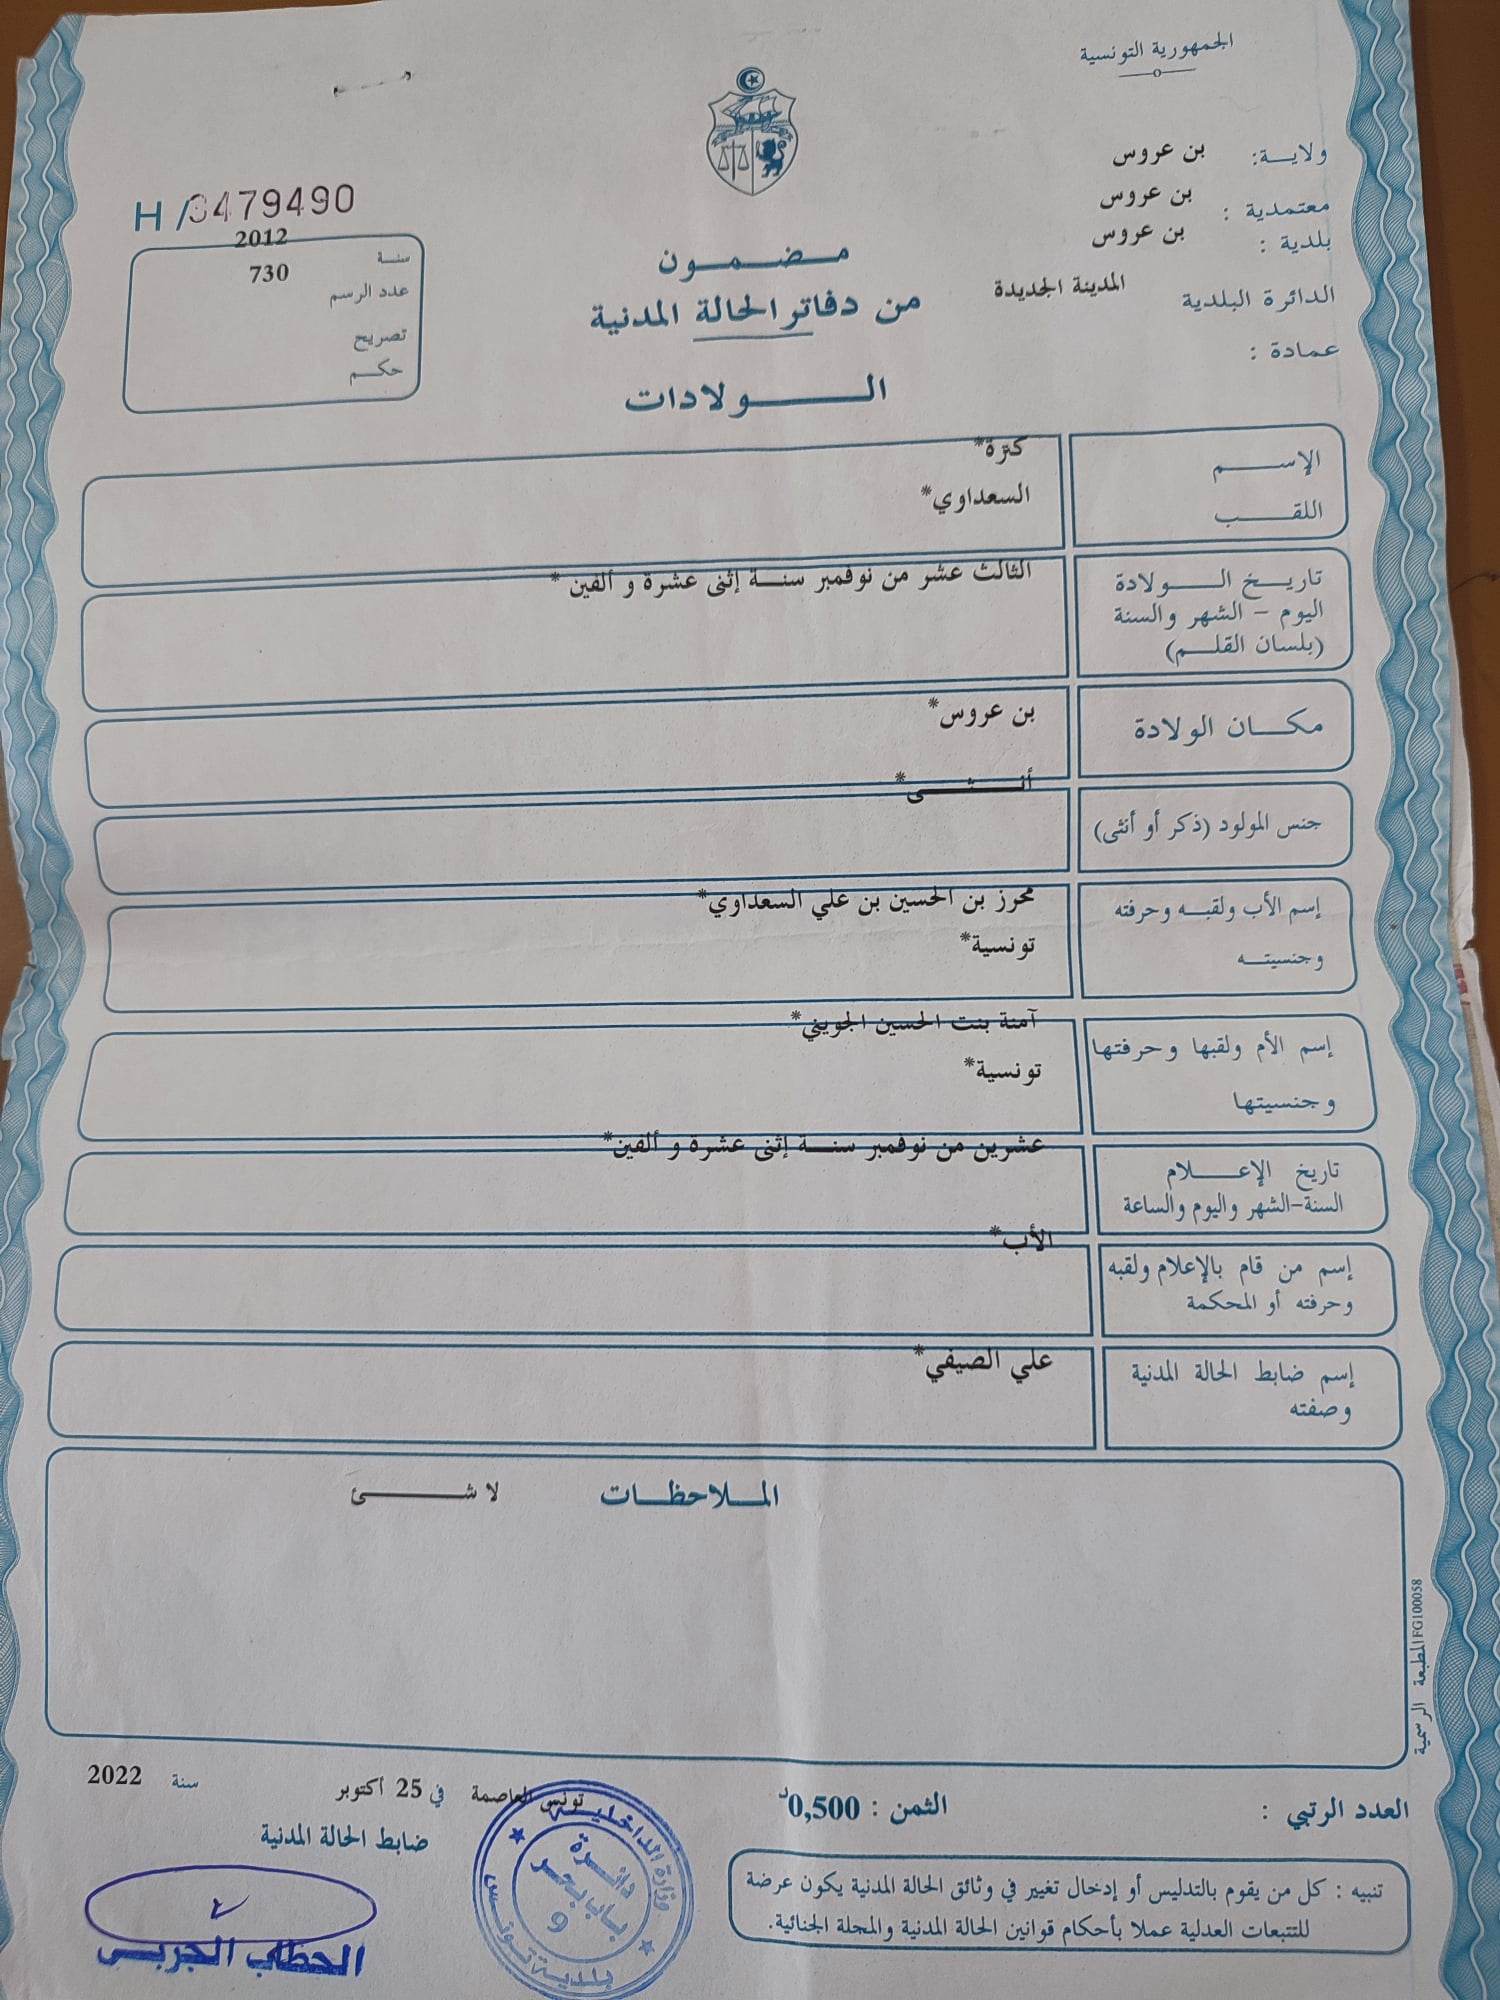 الجمهورية التونسية
ولاية: بن عروس
معتمدية : بن عروس
بلدية : بن عروس
الدائرة البلدية المدينة الجديدة
عمادة :
H /3479490
سنة 2012
عدد الرسم 730
تصريح
حكم
مضمون
من دفاتر الحالة المدنية
الولادات
الإسم كنزة*
اللقب السعداوي*
تاريخ الولادة الثالث عشر من نوفمبر سنة إثنى عشرة و ألفين *
اليوم - الشهر والسنة
(بلسان القلم)
مكان الولادة بن عروس*
جنس المولود (ذكر أو أنثى) أنثى*
إسم الأب ولقبه وحرفته محرز بن الحسين بن علي السعداوي*
وجنسيته تونسية*
إسم الأم ولقبها وحرفتها آمنة بنت الحسين الجويني*
وجنسيتها تونسية*
تاريخ الإعلام عشرين من نوفمبر سنة إثنى عشرة و ألفين*
السنة-الشهر واليوم والساعة
إسم من قام بالإعلام ولقبه الأب*
وحرفته أو المحكمة
إسم ضابط الحالة المدنية علي الصيفي*
وصفته
الملاحظات لا شئ
المطبعة الرسمية FG100058
العدد الرتبي :
الثمن : 0,500د
تونس العاصمة في 25 أكتوبر سنة 2022
ضابط الحالة المدنية
تنبيه : كل من يقوم بالتدليس أو إدخال تغيير في وثائق الحالة المدنية يكون عرضة
للتتبعات العدلية عملا بأحكام قوانين الحالة المدنية والمجلة الجنائية.
وزارة الداخلية
دائرة
باب بحر
9
بلدية تونس
الحطاب الجربي